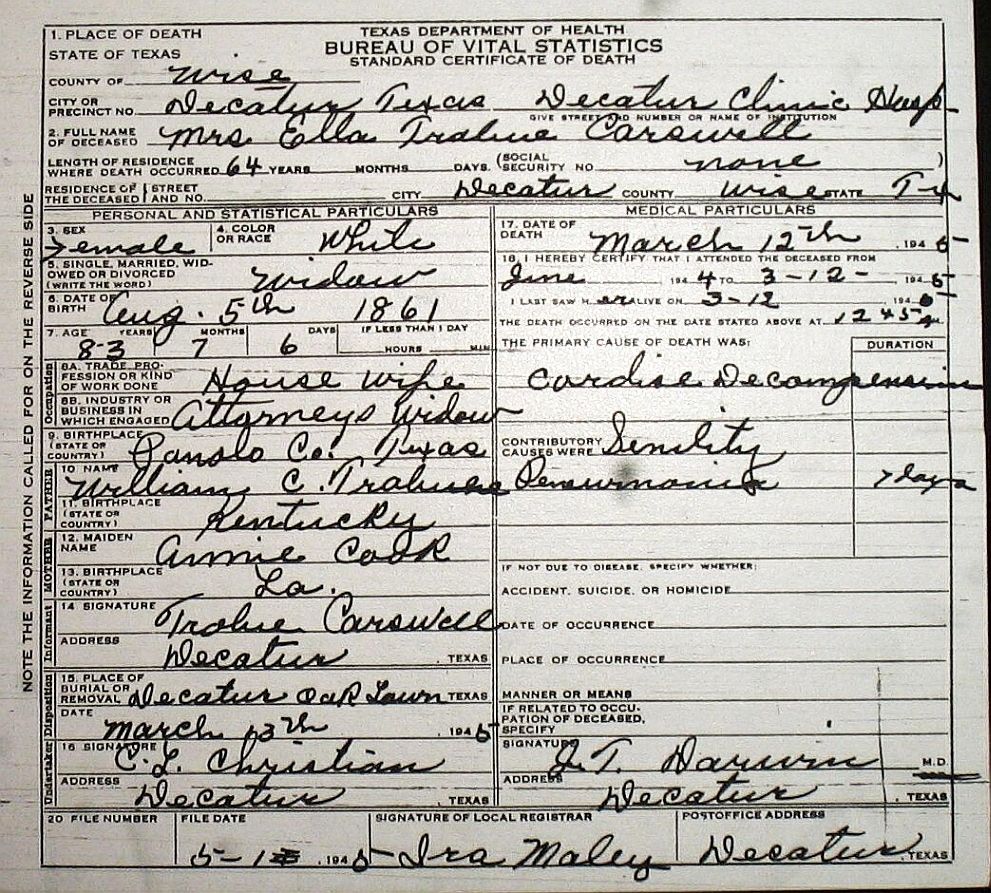 TEXAS DEPARTMENT OF HEALTH
BUREAU OF VITAL STATISTICS
STANDARD CERTIFICATE OF DEATH
1. PLACE OF DEATH
STATE OF TEXAS
COUNTY OF Wise
CITY OR PRECINCT NO. Decatur Texas Decatur Clinic Hosp
GIVE STREET AND NUMBER OR NAME OF INSTITUTION
2. FULL NAME OF DECEASED Mrs Ella Trabue Carswell
LENGTH OF RESIDENCE WHERE DEATH OCCURRED 64 YEARS MONTHS DAYS. (SOCIAL SECURITY NO none )
RESIDENCE OF THE DECEASED STREET AND NO. CITY Decatur COUNTY Wise STATE Tx
PERSONAL AND STATISTICAL PARTICULARS
3. SEX Female 4. COLOR OR RACE White
5. SINGLE, MARRIED, WIDOWED OR DIVORCED (WRITE THE WORD) Widow
6. DATE OF BIRTH Aug. 5th 1861
7. AGE YEARS MONTHS DAYS IF LESS THAN 1 DAY
83 7 6 HOURS MIN
Occupation
8A. TRADE, PROFESSION OR KIND OF WORK DONE House wife
8B. INDUSTRY OR BUSINESS IN WHICH ENGAGED Attorneys Widow
9. BIRTHPLACE (STATE OR COUNTRY) Panolo Co. Texas
FATHER
10 NAME William C. Trabue
11. BIRTHPLACE (STATE OR COUNTRY) Kentucky
MOTHER
12. MAIDEN NAME Annie Cook
13. BIRTHPLACE (STATE OR COUNTRY) La.
Informant
14 SIGNATURE Trabue Carswell
ADDRESS Decatur , TEXAS
Undertaker Disposition
15. PLACE OF BURIAL OR REMOVAL Decatur Oak Lawn TEXAS
DATE March 13th 1945
16 SIGNATURE C. L. Christian
ADDRESS Decatur , TEXAS
MEDICAL PARTICULARS
17. DATE OF DEATH March 12th , 1945
18. I HEREBY CERTIFY THAT I ATTENDED THE DECEASED FROM
June 1944 TO 3-12- 1945
I LAST SAW H er ALIVE ON 3-12 1945
THE DEATH OCCURRED ON THE DATE STATED ABOVE AT 1245
THE PRIMARY CAUSE OF DEATH WAS: DURATION
Cardiac Decompensation
CONTRIBUTORY CAUSES WERE Senility
Pneumonia 7 days
IF NOT DUE TO DISEASE, SPECIFY WHETHER:
ACCIDENT, SUICIDE, OR HOMICIDE
DATE OF OCCURRENCE
PLACE OF OCCURRENCE
MANNER OR MEANS
IF RELATED TO OCCUPATION OF DECEASED, SPECIFY
SIGNATURE J. T. Darwin M.D.
ADDRESS Decatur , TEXAS
20 FILE NUMBER FILE DATE SIGNATURE OF LOCAL REGISTRAR POSTOFFICE ADDRESS
5-1 , 1945 Ira Maley Decatur , TEXAS
NOTE THE INFORMATION CALLED FOR ON THE REVERSE SIDE